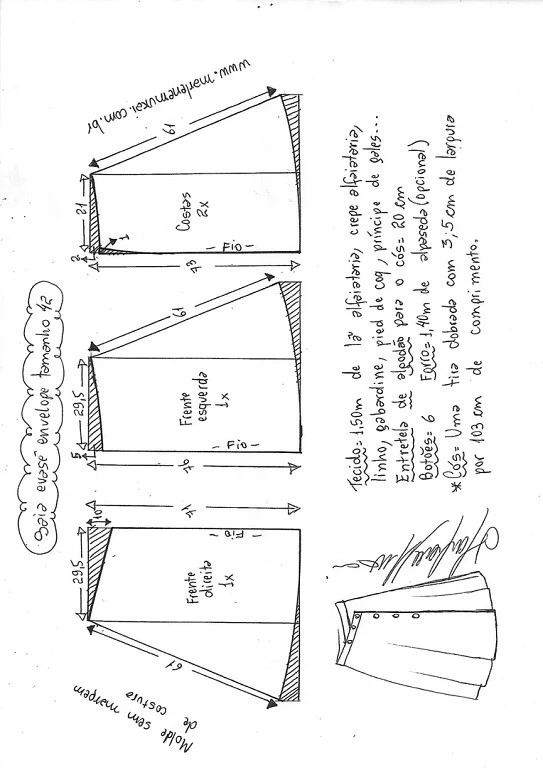 Saia evasê envelope tamanho 42
Molde sem margem
de costura
29,5
10
61
Fio
Frente
direita
1x
29,5
5
61
76
Fio
Frente
esquerda
1x
21
2
1
61
73
Fio
Costas
2x
www.marlenemukai.com.br
Tecido=1,50m de lã alfaiataria, crepe alfaiataria,
linho, gabardine, pied de coq, príncipe de gales...
Entretela de algodão para o cós= 20 cm
Botões= 6 Forro=1,40m de alpaseda (opcional)
*Cós= Uma tira dobrada com 3,5 cm de largura
por 103 cm de comprimento.